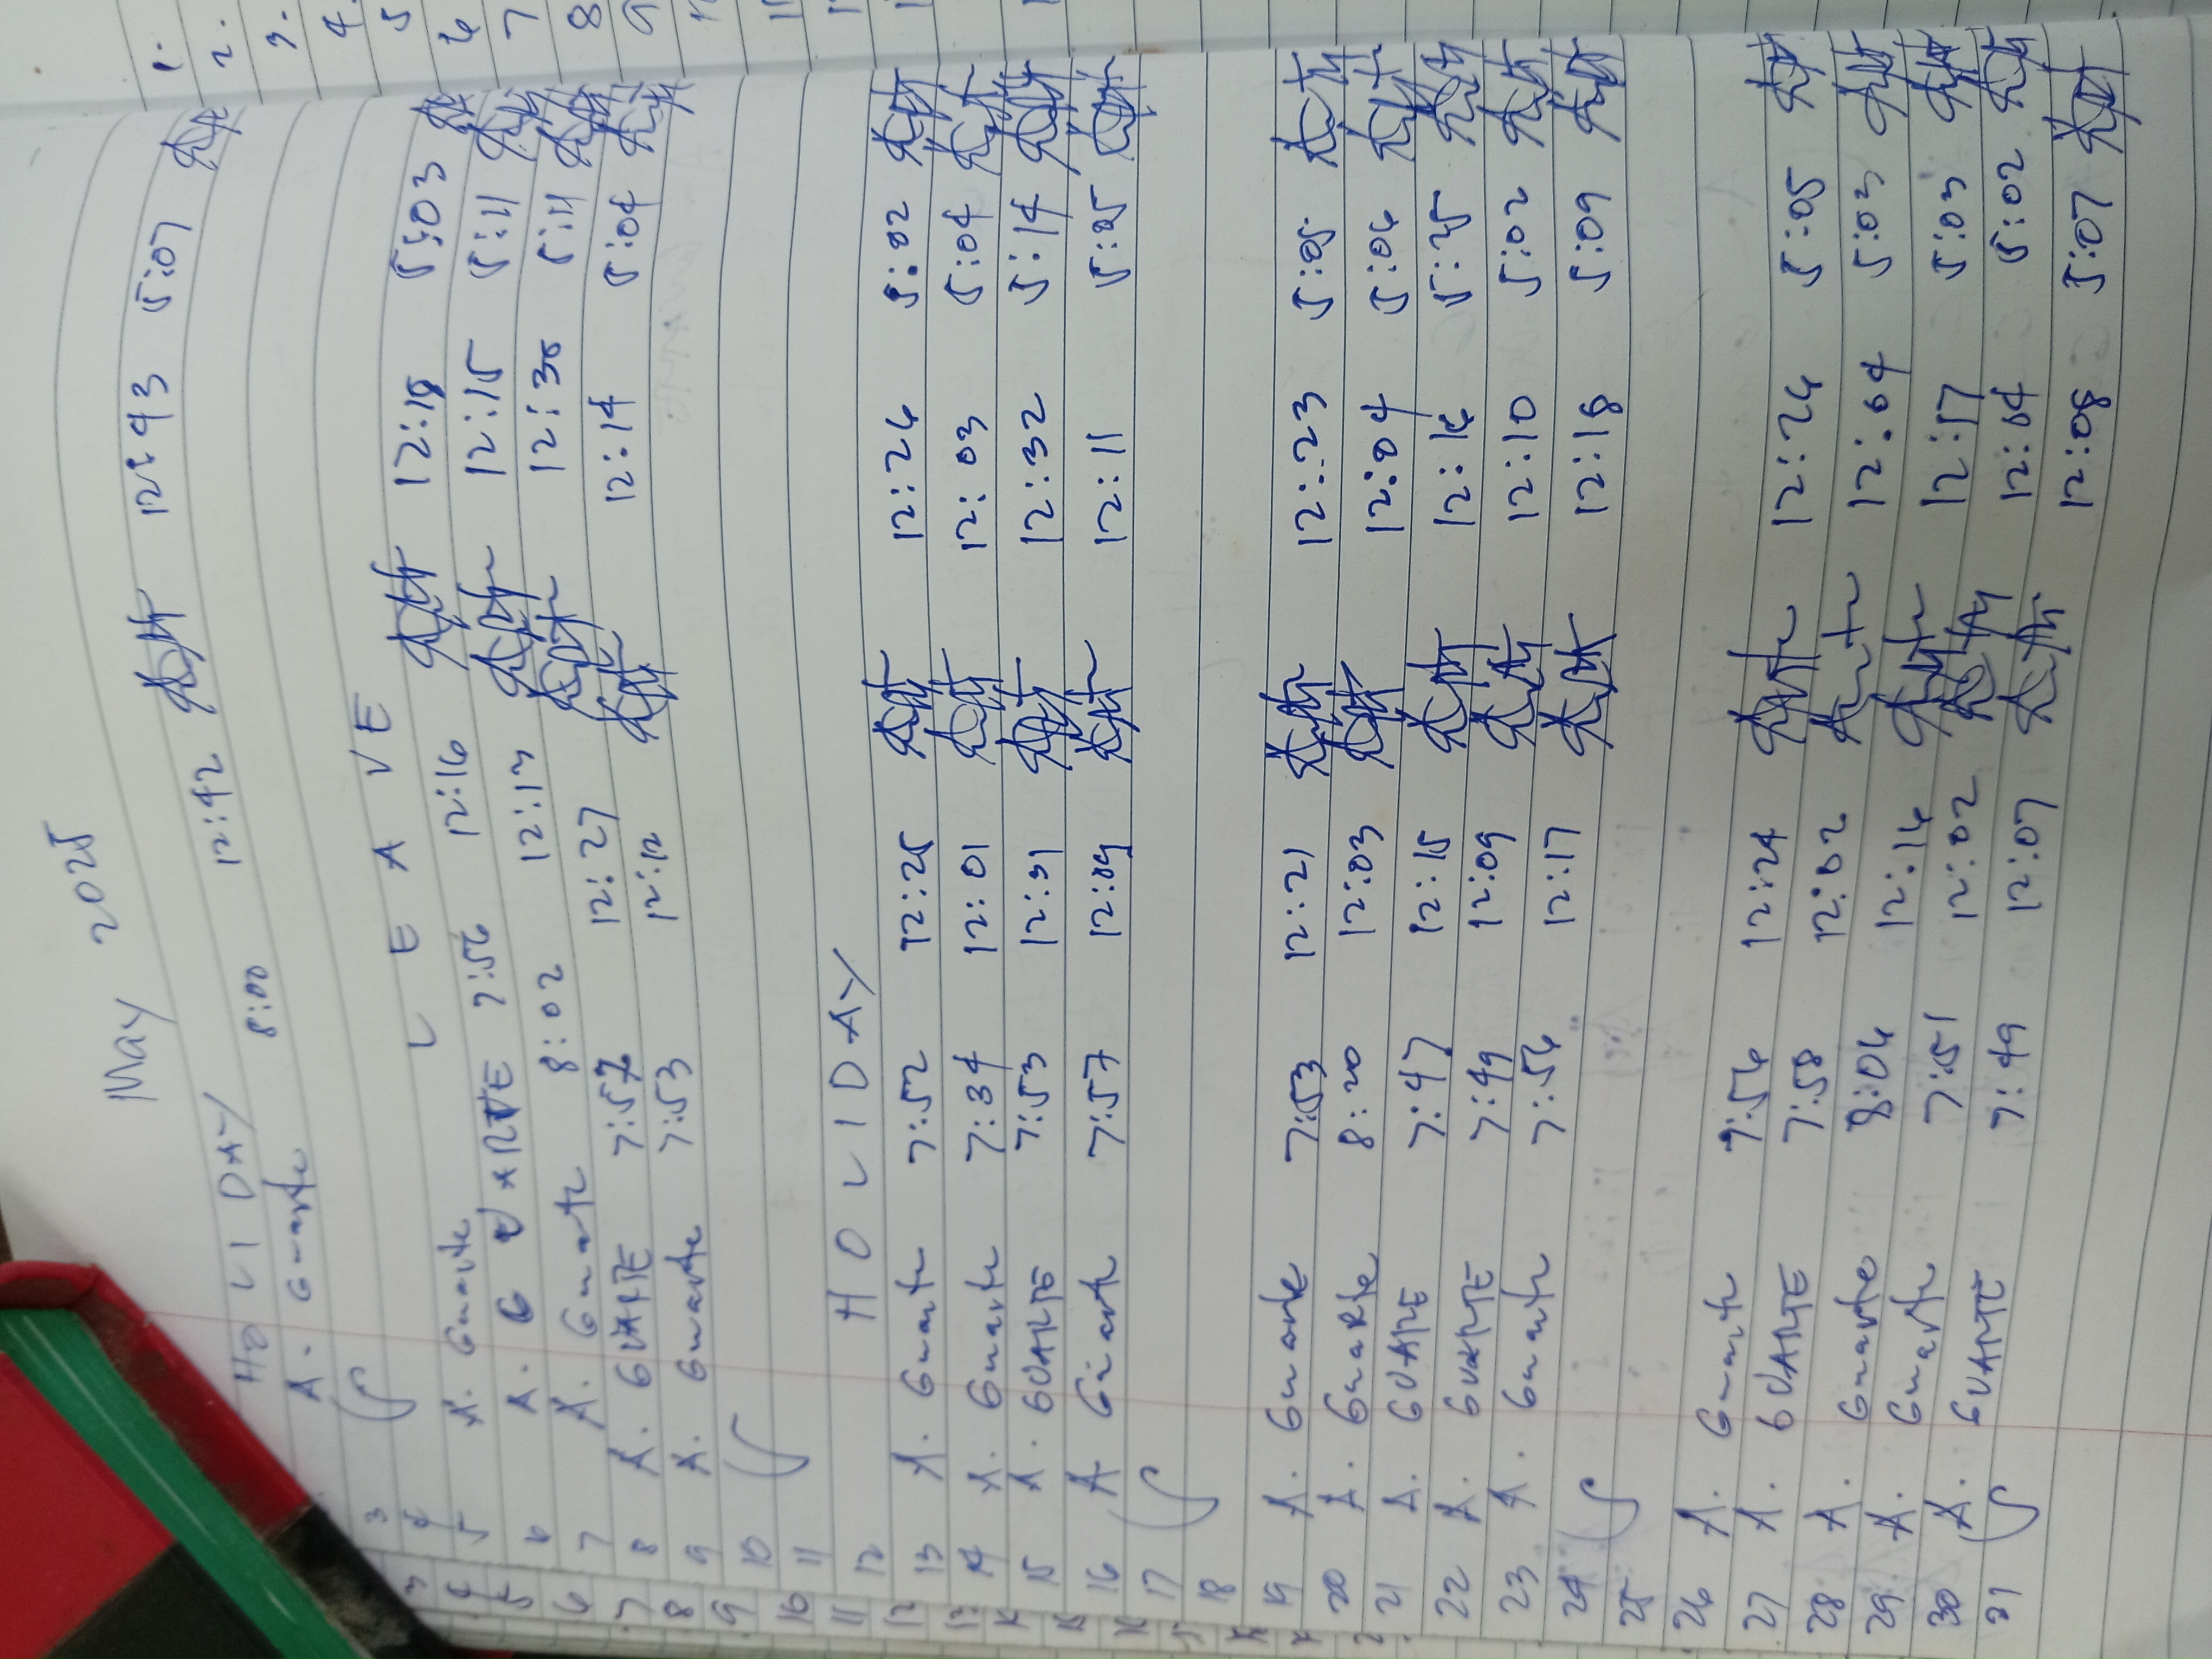 May 2025
HOLIDAY
A. Guarte 8:00 12:42 12:43 5:07
3
4
5 A. Guarte L E A V E
6 A. GUARTE 7:56 12:16 12:18 5:03
7 A. Guarte 8:02 12:13 12:15 5:11
8 A. GUARTE 7:57 12:27 12:30 5:11
9 A. Guarte 7:53 12:12 12:14 5:04
10
11
12 H O L I D A Y
13 A. Guarte 7:52 12:25 12:26 5:02
14 A. Guarte 7:34 12:01 12:03 5:04
15 A. GUARTE 7:53 12:31 12:32 5:14
16 A Guarte 7:57 12:09 12:11 5:05
17
18
19 A. Guarte 7:53 12:21 12:23 5:05
20 A. Guarte 8:20 12:03 12:04 5:06
21 A. GUARTE 7:47 12:15 12:16 5:25
22 A. GUARTE 7:49 12:09 12:10 5:02
23 A. Guarte 7:56 12:17 12:18 5:09
24
25
26 A. Guarte 7:56 12:24 12:26 5:05
27 A. GUARTE 7:58 12:02 12:04 5:03
28 A. Guarte 8:04 12:14 12:17 5:03
29 A. Guarte 7:51 12:02 12:04 5:02
30 A. GUARTE 7:49 12:07 12:08 5:07
31